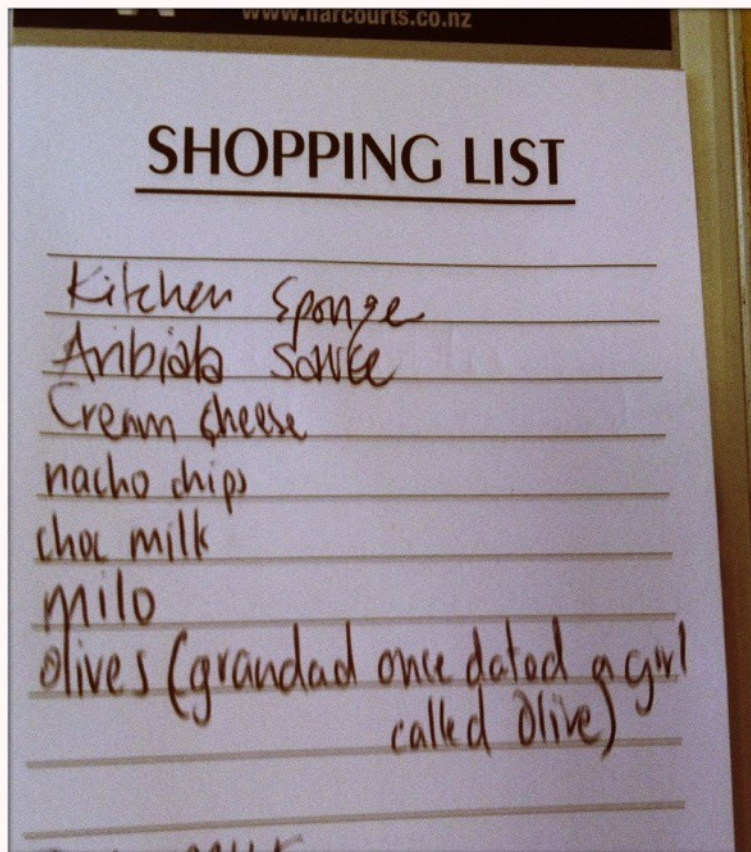 www.harcourts.co.nz
SHOPPING LIST
Kitchen Sponge
Aribiata sauce
Cream cheese
nacho chips
choc milk
milo
olives (grandad once dated a girl
called Olive)